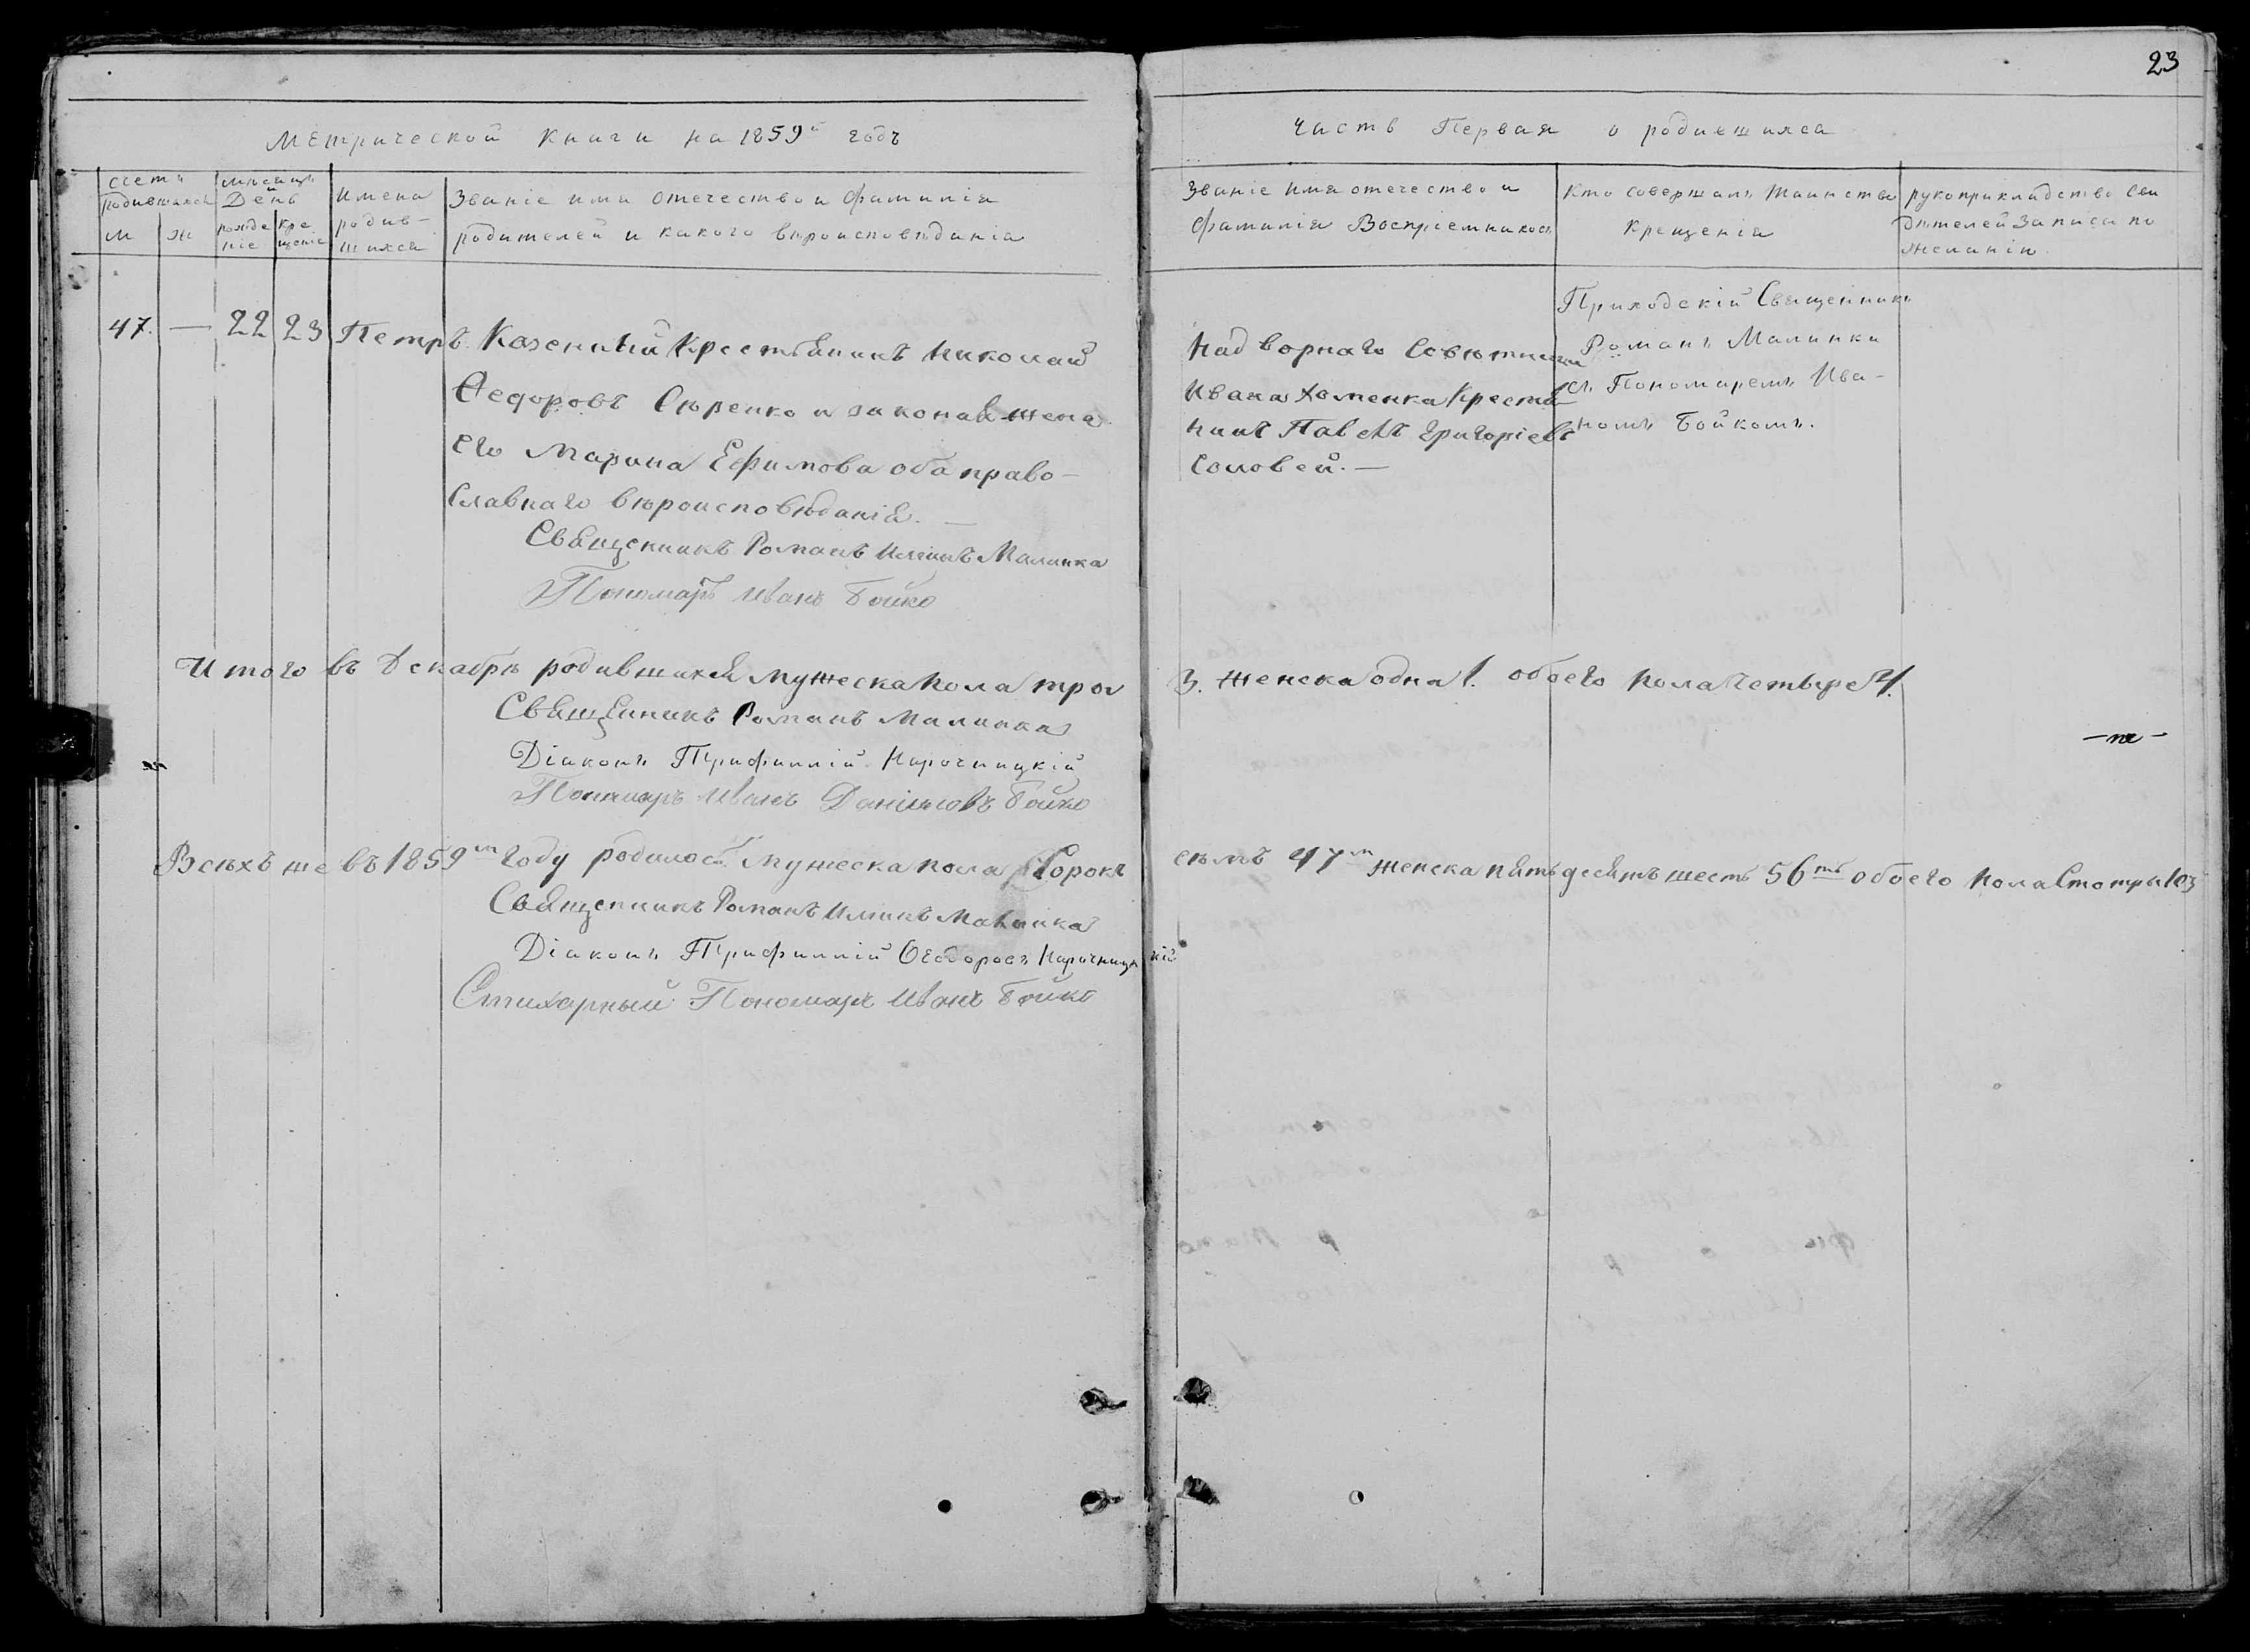 23
Метрической книги на 1859й годъ
Часть Первая о родившихся
счетъ родившихся
м ж
мѣсяцъ и День
рожденіе
крещеніе
Имена родившихся
Званіе имя отечество и фамилія
родителей и какого вѣроисповѣданія
Званіе имя отечество и
фамилія Воспріемниковъ
Кто совершалъ таинство
крещенія
рукоприкладство сви
дѣтелей записи по
желанію.
47. — 22 23 Петръ
Казенный Крестьянинъ Николай
Ѳедоровъ Сѣренко и законая жена
его Марина Ефимова оба право-
славнаго вѣроисповѣданія. —
Священникъ Романъ Ильинъ Малинка
Пономарь Иванъ Бойко
Надворнаго Совѣтника
Ивана Хоменка Крестья
нинъ Павелъ Григоріевъ
Соловей. —
Приходскій Священникъ
Романъ Малинка
съ Пономаремъ Ива-
номъ Бойкомъ.
Итого въ Декабрѣ родившихся мужеска пола трои 3. женска одна 1. обоего пола четыре 4.
Священникъ Романъ Малинка
Діаконъ Трифиллій Нарочницкій
Пономарь Иванъ Даниловъ Бойко
Всѣхъ же въ 1859м году родилось мужеска пола Сорокъ семъ 47м женска пятьдесятъ шесть 56ть обоего пола Сто три 103
Священникъ Романъ Ильинъ Малинка
Діаконъ Трифиллій Ѳеодоровъ Нарочницкій
Стихарный Пономарь Иванъ Бойко